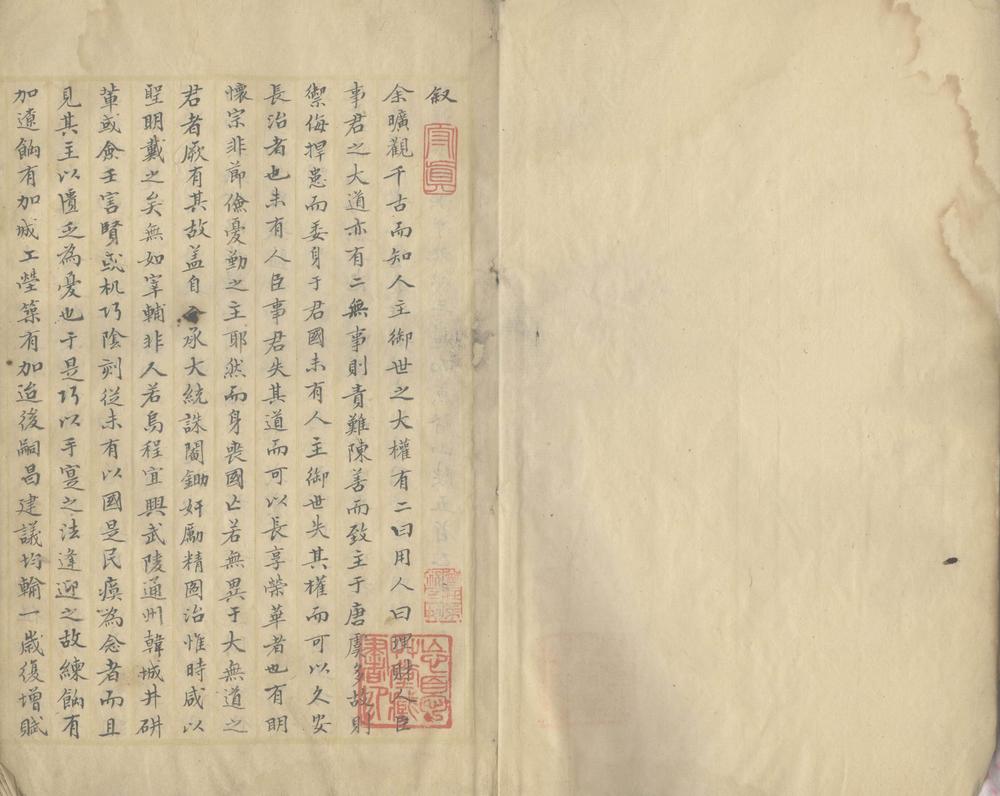 叙
余曠觀千古而知人主御世之大權有二曰用人曰理財人臣
事君之大道亦有二無事則責難陳善而致主于唐虞多故則
禦侮捍患而委身于君國未有人主御世失其權而可以久安
長治者也未有人臣事君失其道而可以長享榮華者也有明
懷宗非節儉憂勤之主耶然而身喪國亡若無異于大無道之
君者厥有其故盖自承大統誅閹鋤奸勵精圖治惟時咸以
聖明戴之矣無如宰輔非人若烏程宜興武陵通州韓城井研
軰或僉壬害賢或机巧陰刻從未有以國是民瘼為念者而且
見其主以匱乏為憂也于是巧以手寔之法逢迎之故練餉有
加遼餉有加城工營築有加迨後嗣昌建議均輸一歲復增賦